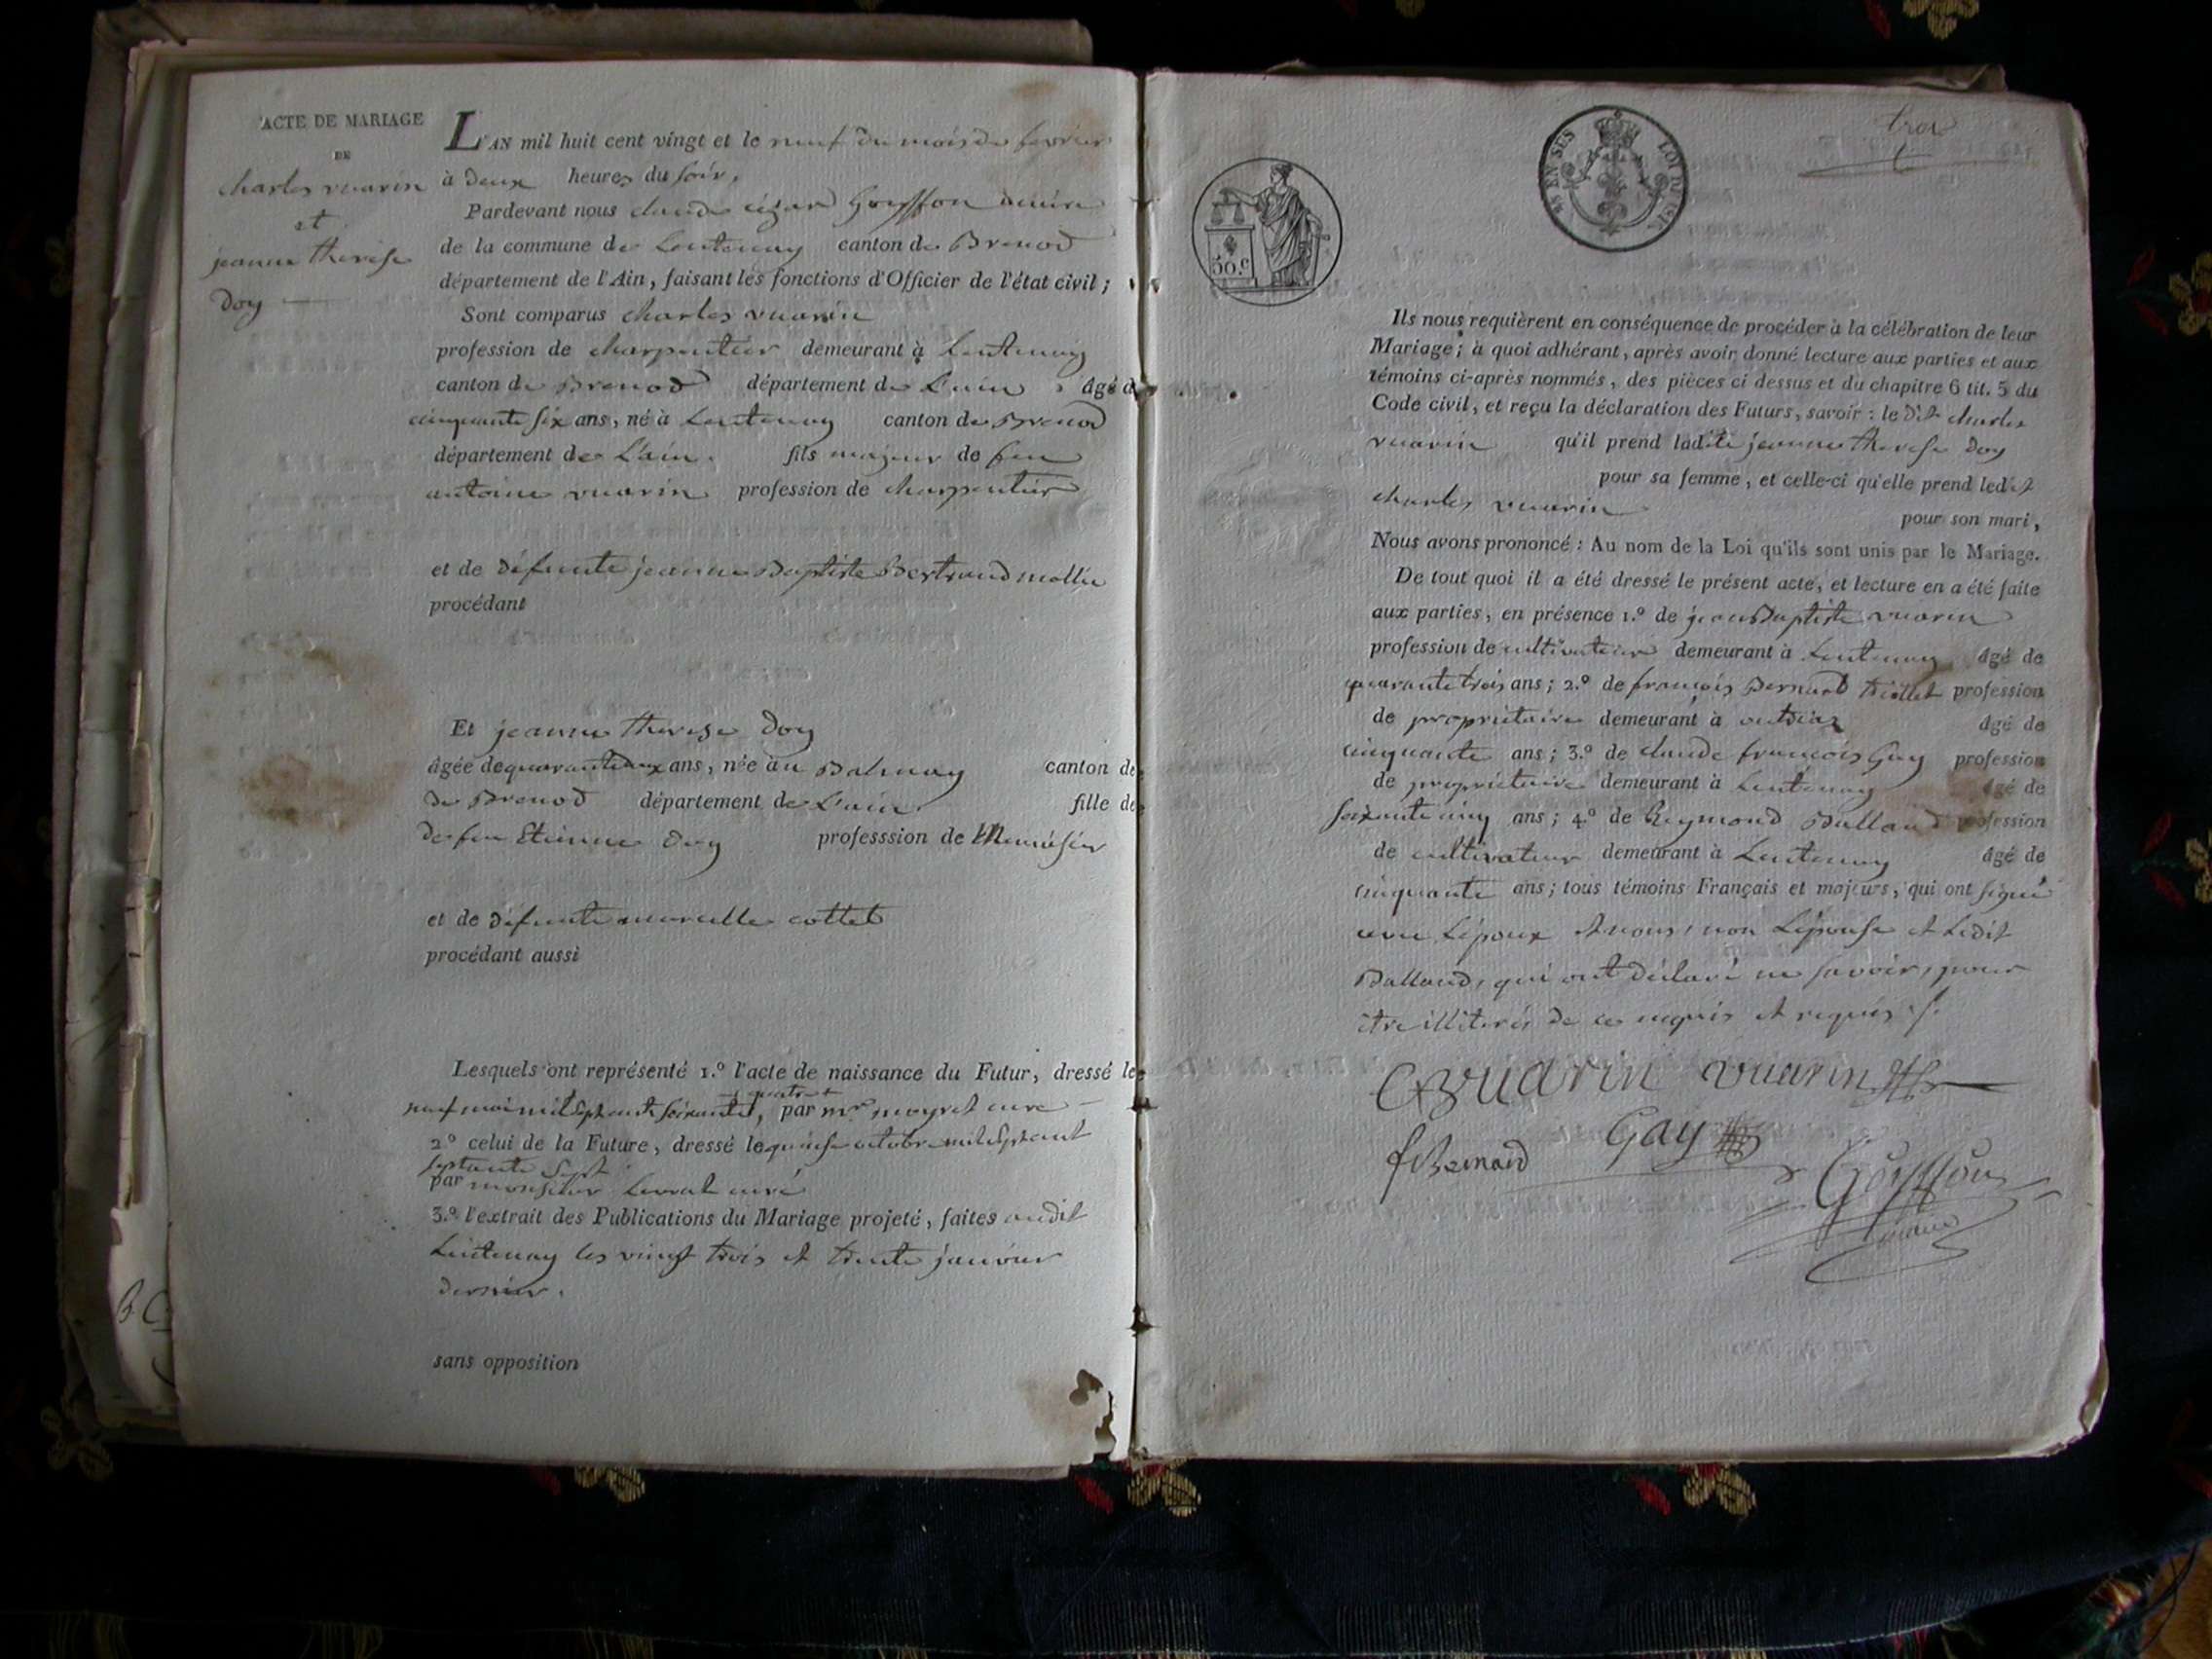 ACTE DE MARIAGE
DE
charles vuarin
et
jeanne therese
Doy
L'AN mil huit cent vingt et le neuf du mois de fevrier
à deux heures du soir,
Pardevant nous claude cézar Goyffon maire
de la commune de Lentenay canton de Brenod
département de l'Ain, faisant les fonctions d'Officier de l'état civil ;
Sont comparus charles vuarin
profession de charpentier demeurant à Lentenay
canton de Brenod département de L'ain, âgé d
cinquante six ans, né à Lentenay canton de Brenod
département de L'ain. fils majeur de feu
antoine vuarin profession de charpentier
et de défunte jeanne Baptiste Bertrand mollie
procédant
Et jeanne therese Doy
âgée de quarante deux ans, née au Balmay canton de
de Brenod département de L'ain. fille de
de feu Etienne Doy professsion de Menuisier
et de défunte marcelle cottet
procédant aussi
Lesquels ont représenté 1.º l'acte de naissance du Futur, dressé le
quatre
neuf mai mil sept cent soixante, par mr. moyret curé
2º celui de la Future, dressé le quinse octobre mil sept cent
septante sept
par monsieur Levrat curé
3.º l'extrait des Publications du Mariage projeté, faites audit
Lentenay les vingt trois et trente janvier
dernier.
sans opposition
B C
50.C
EN SES
LOI DU
trois
Ils nous requièrent en conséquence de procéder à la célébration de leur
Mariage ; à quoi adhérant, après avoir donné lecture aux parties et aux
témoins ci-après nommés, des pièces ci dessus et du chapitre 6 tit. 5 du
Code civil, et reçu la déclaration des Futurs, savoir : le dit charles
vuarin qu'il prend ladite jeanne therese Doy
pour sa femme, et celle-ci qu'elle prend ledit
charles vuarin
pour son mari,
Nous avons prononcé : Au nom de la Loi qu'ils sont unis par le Mariage.
De tout quoi il a été dressé le présent acte, et lecture en a été faite
aux parties, en présence 1.º de jean Baptiste vuarin
profession de cultivateur demeurant à Lentenay âgé de
quarante trois ans ; 2.º de françois Bernard triollet profession
de propriétaire demeurant à outriaz âgé de
cinquante ans ; 3.º de claude françois Gay profession
de propriétaire demeurant à Lentenay âgé de
soixante cinq ans ; 4º de Reymond Balland profession
de cultivateur demeurant à Lentenay âgé de
cinquante ans ; tous témoins Français et majeurs, qui ont signé
avec L'époux et nous, non L'épouse et Ledit
Balland, qui ont déclaré ne savoir, pour
être illiterés de ce enquis et requis ./.
C vuarin vuarin
fBernard Gay Goyffon
maire